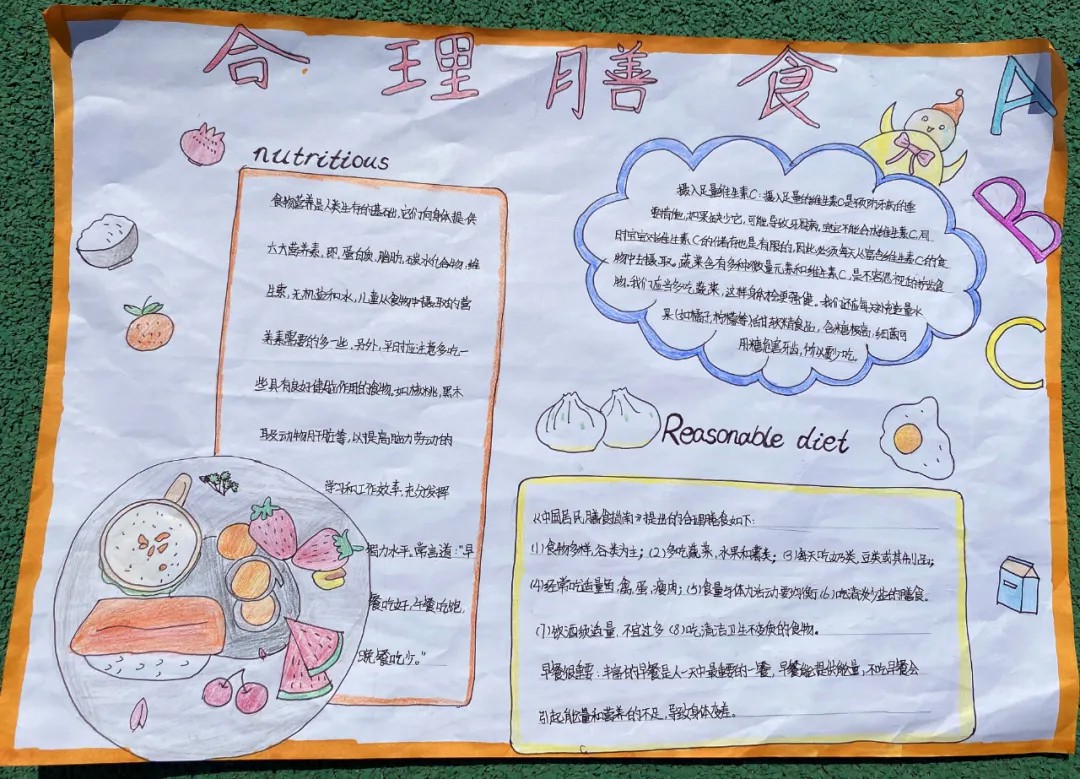 合理膳食
A
B
C
nutritious
食物营养是人类生存的基础,它们向身体提供
六大营养素,即蛋白质,脂肪,碳水化合物,维
生素,无机盐和水,儿童从食物中摄取的营
养素需要的多一些,另外,平时应注意多吃一
些具有良好健脑作用的食物,如核桃,黑木
耳及动物肝脏等,以提高脑力劳动的
学习和工作效率,充分发挥
智力水平,常言道:"早
餐吃好,午餐吃饱,
晚餐吃少。"
摄入足量维生素C:摄入足量的维生素C是预防牙病的重
要措施,如果缺少它,可能导致牙龈病,宝宝不能合成维生素C,同
时宝宝对维生素C的储存也是有限的,因此必须每天从富含维生素C的食
物中去摄取。蔬菜含有多种微量元素和维生素C,是不容忽视的护齿食
物,我们应当多吃蔬菜,这样身体会更强健。我们还应每天补充适量水
果(如橘子,柠檬等)甜软精食品,含糖极高,细菌可
用糖危害牙齿,所以要少吃。
Reasonable diet
从《中国居民膳食指南》提出的合理膳食如下:
(1)食物多样,谷类为主;(2)多吃蔬菜,水果和薯类;(3)每天吃奶类,豆类或其制品;
(4)经常吃适量鱼,禽,蛋,瘦肉;(5)食量与体力活动要均衡(6)吃清淡少盐的膳食。
(7)饮酒须适量,不宜过多(8)吃清洁卫生不变质的食物。
早餐很重要:丰富的早餐是人一天中最重要的一餐,早餐能提供能量,不吃早餐会
引起能量和营养的不足,导致身体变差。